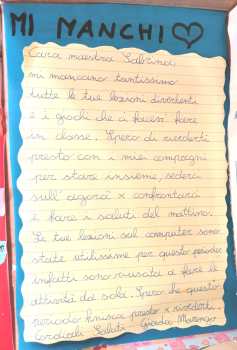 MI MANCHI ♡
Cara maestra Sabrina,
mi mancano tantissimo
tutte le tue lezioni divertenti
e i giochi che ci facevi fare
in classe. Spero di rivederti
presto con i miei compagni
per stare insieme, sederci
sull'agorà x confrontarci
e fare i saluti del mattino.
Le tue lezioni sul computer sono
state utilissime per questo periodo
infatti sono riuscita a fare le
attività da sola. Spero che questo
periodo finisca presto x rivederti.
Cordiali Saluti Giada